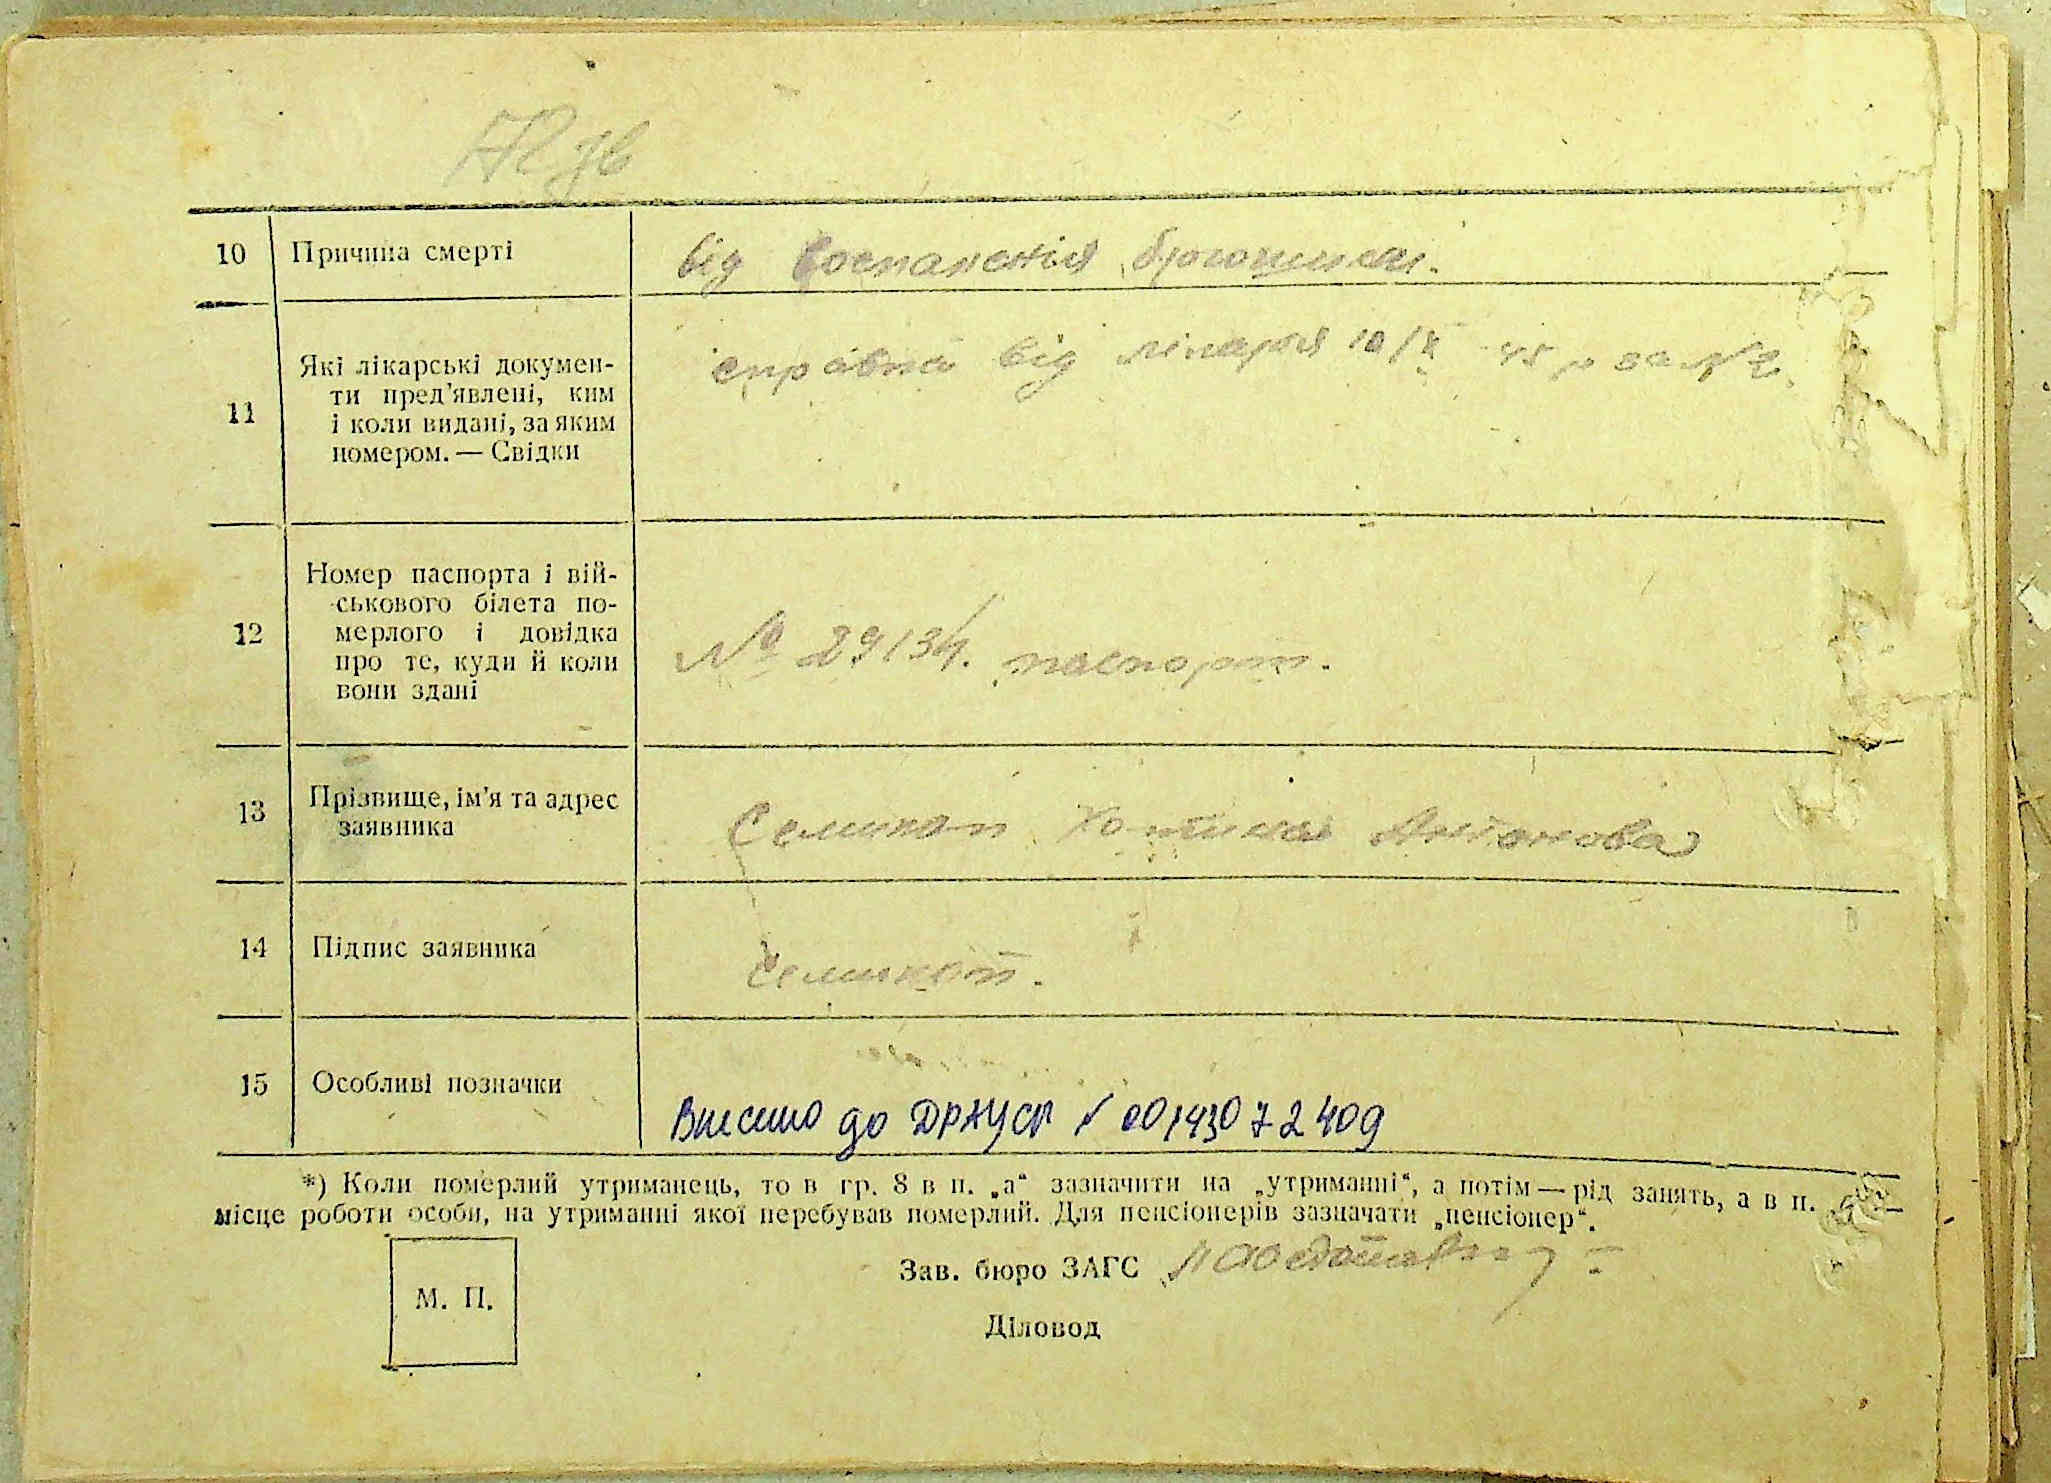 10 Причина смерті
від воспаления брюшини.
11 Які лікарські докумен-
ти пред'явлені, ким
і коли видані, за яким
номером. — Свідки
справка від лікаря 10/X 45 р за № 2.
12 Номер паспорта і вій-
ськового білета по-
мерлого і довідка
про те, куди й коли
вони здані
№ 29134. паспорт.
13 Прізвище, ім'я та адрес
заявника
Антонова
14 Підпис заявника
15 Особливі позначки
Внесено до ДРАЦСГ № 00143072409
*) Коли померлий утриманець, то в гр. 8 в п. „а“ зазначити на „утриманні“, а потім — рід занять, а в п.
місце роботи особи, на утриманні якої перебував померлий. Для пенсіонерів зазначати „пенсіонер“.
М. П.
Зав. бюро ЗАГС
Діловод